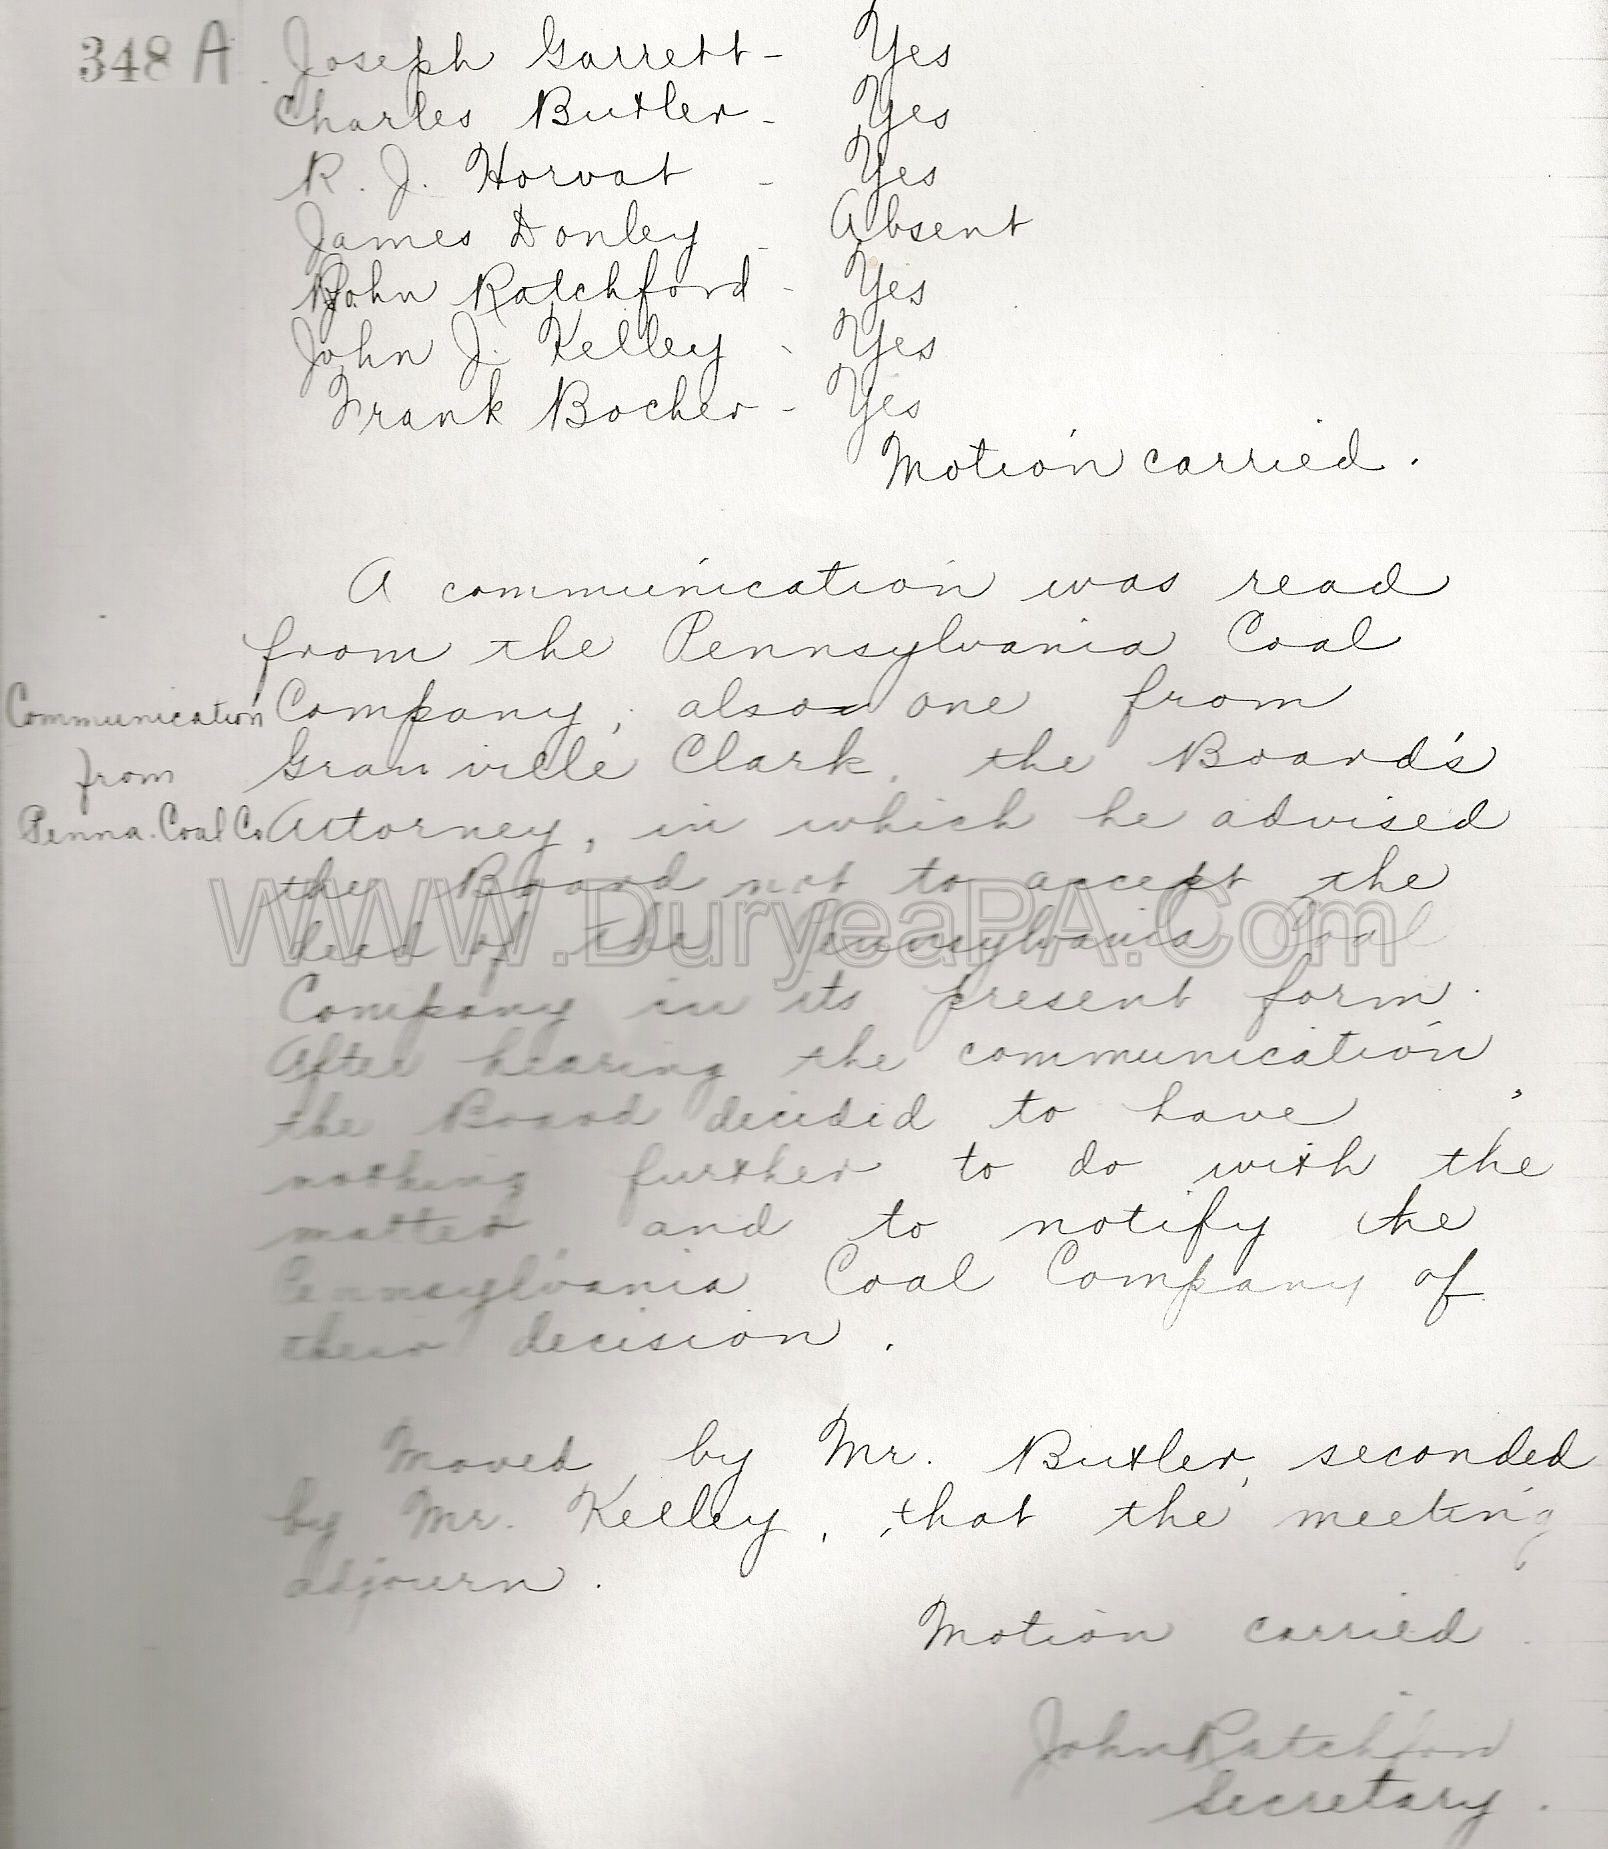 348 A. Joseph Garrett - Yes
Charles Butler - Yes
R. J. Horvat - Yes
James Donley - Absent
John Ratchford - Yes
John J. Kelley - Yes
Frank Bocher - Yes
Motion carried.
A communication was read
from the Pennsylvania Coal
Communication Company, also one from
from Granville Clark, the Board's
Penna. Coal Co Attorney, in which he advised
the Board not to accept the
WWW.DuryeaPA.Com
deed of the Pennsylvania Coal
Company in its present form.
After hearing the communication,
the Board decided to have
nothing further to do with the
matter and to notify the
Pennsylvania Coal Company of
their decision.
Moved by Mr. Butler, seconded
by Mr. Kelley, that the meeting
adjourn.
Motion carried.
John Ratchford
Secretary.